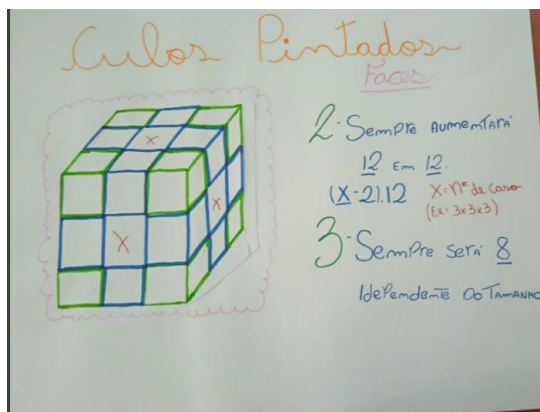 Cubos Pintados
Faces
2- Sempre aumentará
12 em 12.
(X-2).12 X= nº de caso
(Ex= 3x3x3)
3- Sempre será 8
Idependente do tamanho
X
X
X